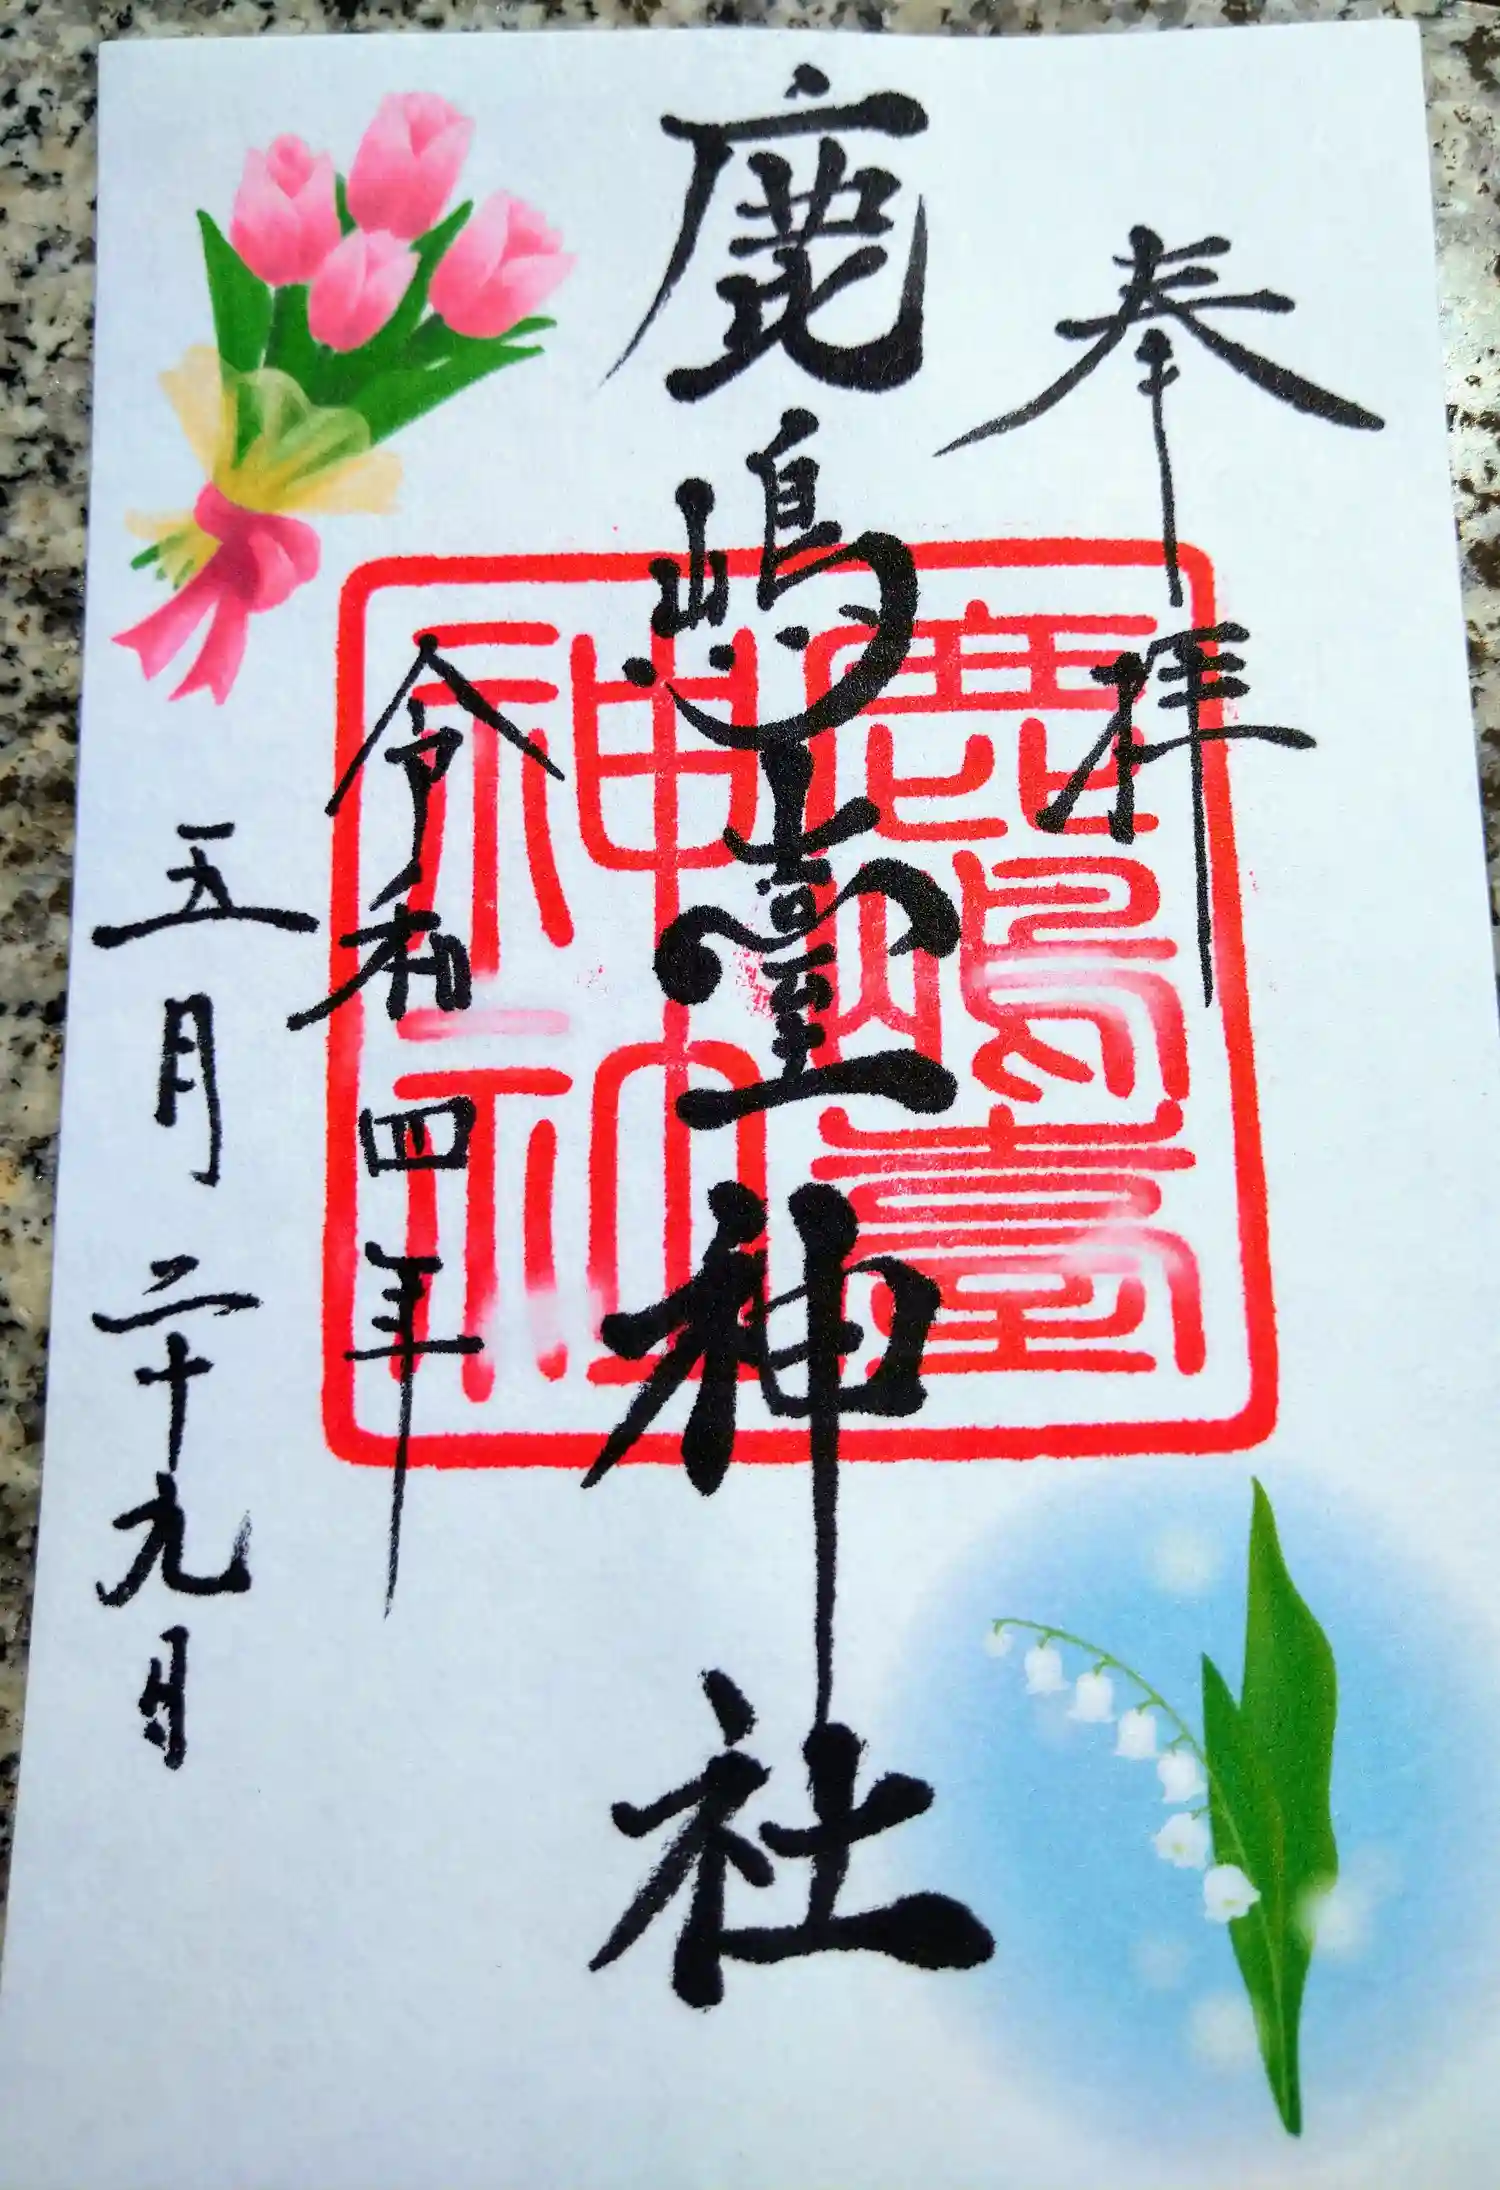 奉拝
鹿嶋臺神社
令和四年
五月二十九日
鹿嶋臺
神社
神社